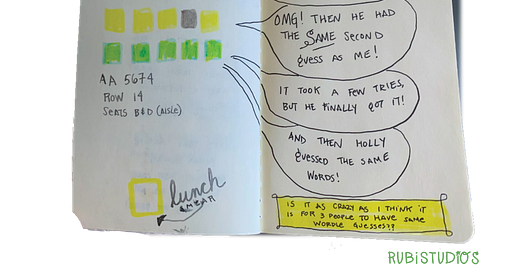 OMG! THEN HE HAD
THE SAME SECOND
GUESS AS ME!
AA 5674
ROW 14
SEATS B&D (AISLE)
IT TOOK A FEW TRIES,
BUT HE FINALLY GOT IT!
AND THEN HOLLY
GUESSED THE SAME
WORDS!
lunch
SMEAR
IS IT AS CRAZY AS I THINK IT
IS FOR 3 PEOPLE TO HAVE SAME
WORDLE GUESSES??
RUBISTUDIOS